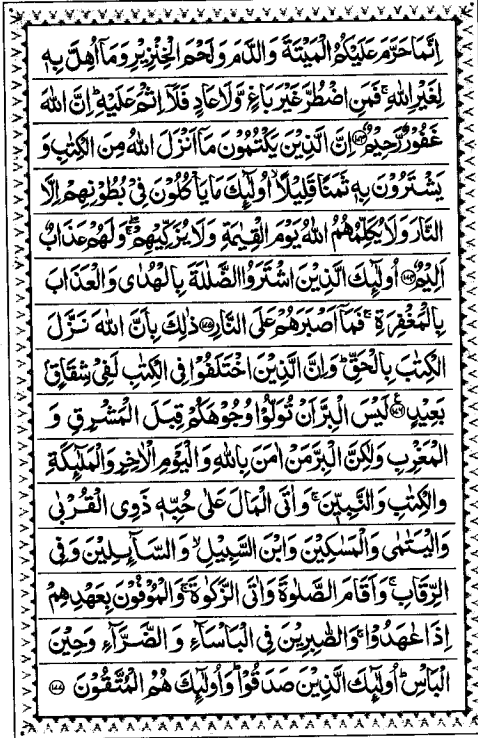 اِنَّمَا حَرَّمَ عَلَيْكُمُ الْمَيْتَةَ وَالدَّمَ وَلَحْمَ الْخِنْزِيْرِ وَمَآ اُهِلَّ بِهٖ
لِغَيْرِ اللّٰهِ ۚ فَمَنِ اضْطُرَّ غَيْرَ بَاغٍ وَّلَا عَادٍ فَلَآ اِثْمَ عَلَيْهِ ؕ اِنَّ اللّٰهَ
غَفُوْرٌ رَّحِيْمٌ اِنَّ الَّذِيْنَ يَكْتُمُوْنَ مَآ اَنْزَلَ اللّٰهُ مِنَ الْكِتٰبِ وَ
يَشْتَرُوْنَ بِهٖ ثَمَنًا قَلِيْلًا ۙ اُولٰٓئِكَ مَا يَاْكُلُوْنَ فِيْ بُطُوْنِهِمْ اِلَّا
النَّارَ وَلَا يُكَلِّمُهُمُ اللّٰهُ يَوْمَ الْقِيٰمَةِ وَلَا يُزَكِّيْهِمْ ۖۚ وَلَهُمْ عَذَابٌ
اَلِيْمٌ اُولٰٓئِكَ الَّذِيْنَ اشْتَرَوُا الضَّلٰلَةَ بِالْهُدٰى وَالْعَذَابَ
بِالْمَغْفِرَةِ ۚ فَمَآ اَصْبَرَهُمْ عَلَى النَّارِ ذٰلِكَ بِاَنَّ اللّٰهَ نَزَّلَ
الْكِتٰبَ بِالْحَقِّ ؕ وَاِنَّ الَّذِيْنَ اخْتَلَفُوْا فِى الْكِتٰبِ لَفِيْ شِقَاقٍۭ
بَعِيْدٍ لَيْسَ الْبِرَّ اَنْ تُوَلُّوْا وُجُوْهَكُمْ قِبَلَ الْمَشْرِقِ وَ
الْمَغْرِبِ وَلٰكِنَّ الْبِرَّ مَنْ اٰمَنَ بِاللّٰهِ وَالْيَوْمِ الْاٰخِرِ وَالْمَلٰٓئِكَةِ
وَالْكِتٰبِ وَالنَّبِيّٖنَ ۚ وَاٰتَى الْمَالَ عَلٰى حُبِّهٖ ذَوِى الْقُرْبٰى
وَالْيَتٰمٰى وَالْمَسٰكِيْنَ وَابْنَ السَّبِيْلِ ۙ وَالسَّآئِلِيْنَ وَفِى
الرِّقَابِ ۚ وَاَقَامَ الصَّلٰوةَ وَاٰتَى الزَّكٰوةَ ۚ وَالْمُوْفُوْنَ بِعَهْدِهِمْ
اِذَا عٰهَدُوْا ۚ وَالصّٰبِرِيْنَ فِى الْبَاْسَآءِ وَ الضَّرَّآءِ وَحِيْنَ
الْبَاْسِ ؕ اُولٰٓئِكَ الَّذِيْنَ صَدَقُوْا ؕ وَاُولٰٓئِكَ هُمُ الْمُتَّقُوْنَ